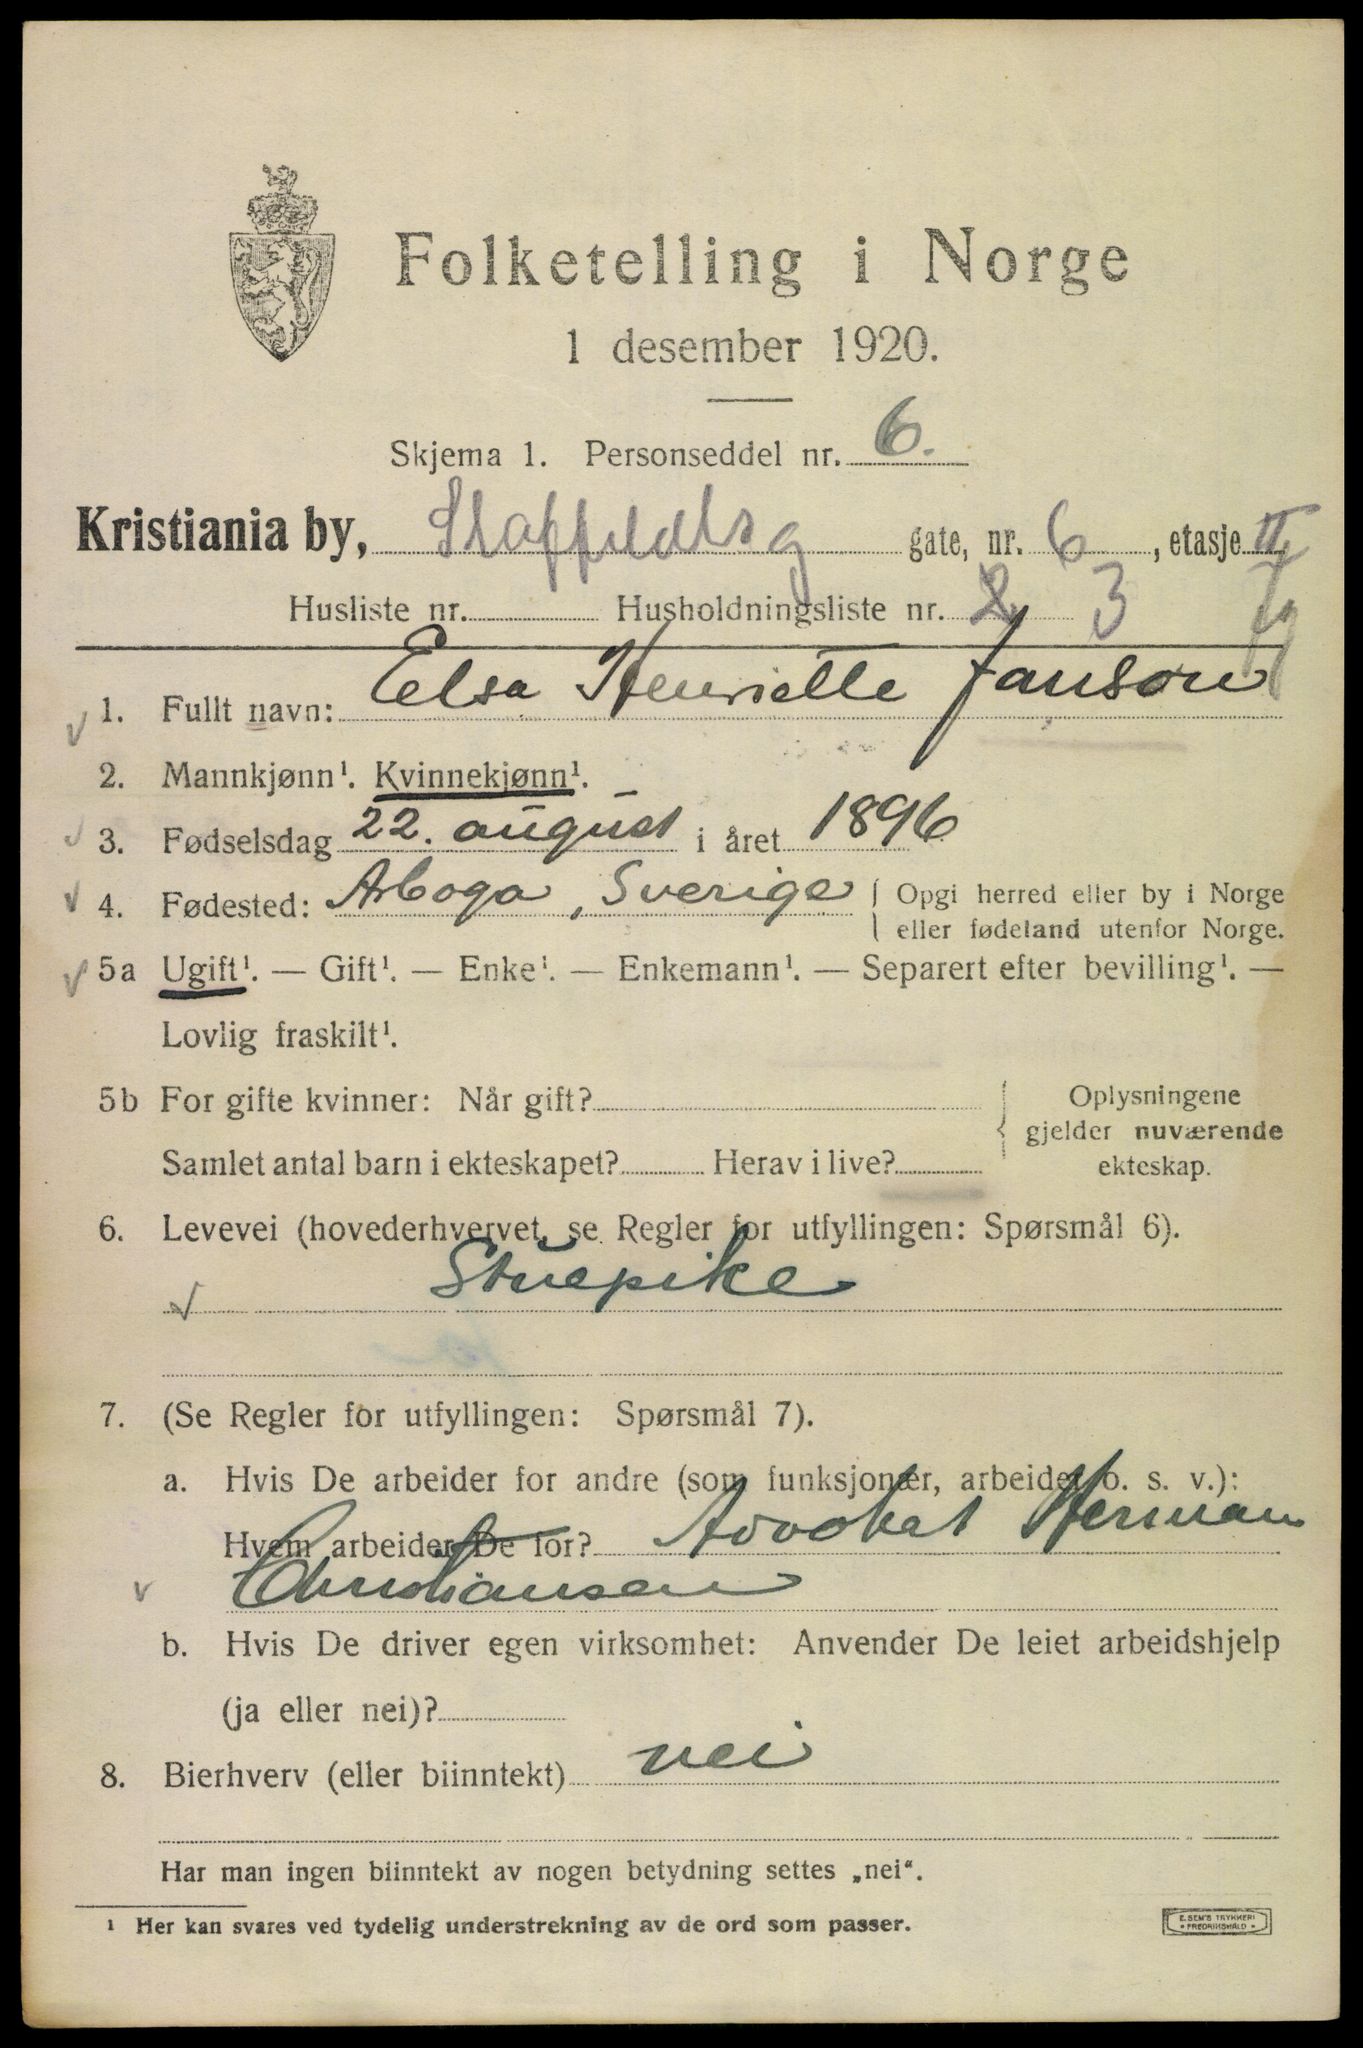 Folketelling i Norge
1 desember 1920.
Skjema 1. Personseddel nr. 6.
Kristiania by, Staffeldtsg gate, nr. 6, etasje II
Husliste nr. Husholdningsliste nr. 2 3
1. Fullt navn: Elsa Henriette Janson
2. Mannkjønn¹. Kvinnekjønn¹.
3. Fødselsdag 22. august i året 1896
4. Fødested: Arboga, Sverige Opgi herred eller by i Norge
eller fødeland utenfor Norge.
5a Ugift¹. — Gift¹. — Enke¹. — Enkemann¹. — Separert efter bevilling¹. —
Lovlig fraskilt¹.
5b For gifte kvinner: Når gift? Oplysningene
gjelder nuværende
Samlet antal barn i ekteskapet? Herav i live? ekteskap.
6. Levevei (hovederhvervet, se Regler for utfyllingen: Spørsmål 6).
Stuepike
7. (Se Regler for utfyllingen: Spørsmål 7).
a. Hvis De arbeider for andre (som funksjonær, arbeider o. s. v.):
Hvem arbeider De for? Advokat Herman
Christiansen
b. Hvis De driver egen virksomhet: Anvender De leiet arbeidshjelp
(ja eller nei)?
8. Bierhverv (eller biinntekt) nei
Har man ingen biinntekt av nogen betydning settes „nei“.
¹ Her kan svares ved tydelig understrekning av de ord som passer.
E. SEM'S TRYKKERI
FREDRIKSHALD